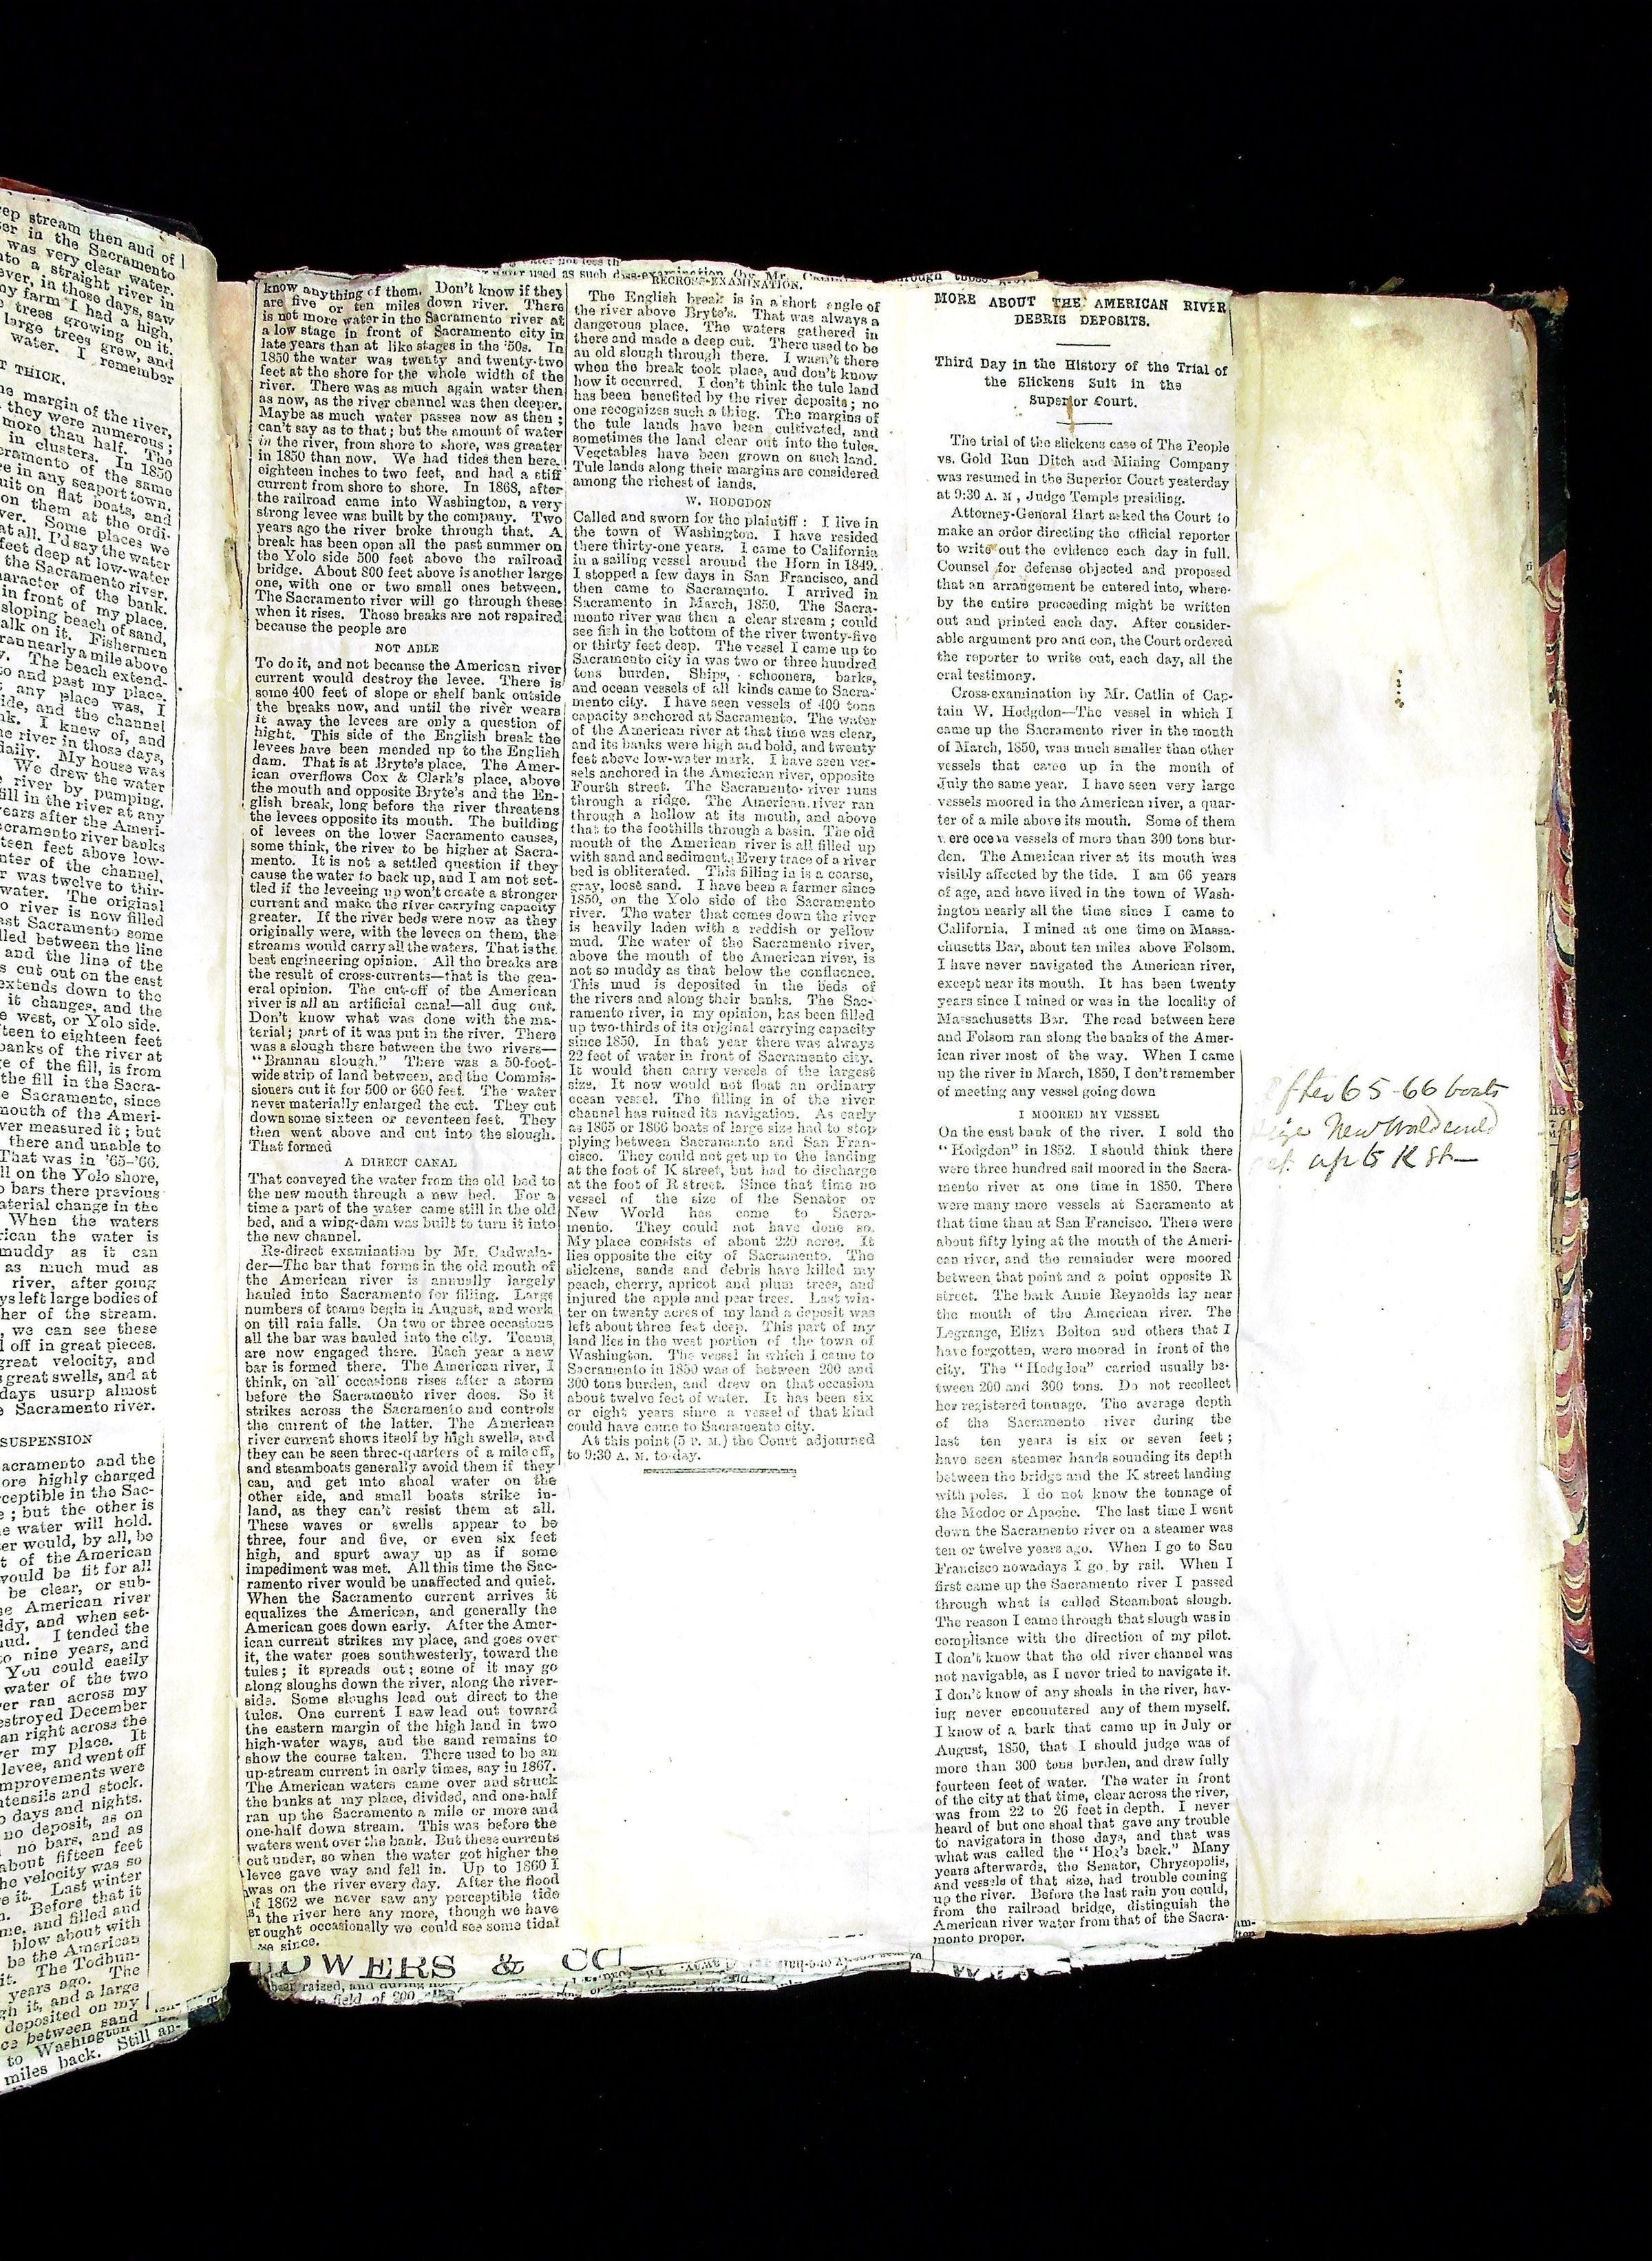 ep stream then and of
er in the Sacramento
was very clear water.
to a straight river in
ever, in those days, saw
my farm I had a high,
trees growing on it.
large trees grew, and
water. I remember
T THICK.
margin of the river,
they were numerous;
more than half. The
in clusters. In 1850
cramento of the same
e in any seaport town.
uit on flat boats, and
on them at the ordi-
ver. Some places we
at all. I'd say the water
feet deep at low-water
the Sacramento river.
aracter of the bank.
in front of my place.
sloping beach of sand,
alk on it. Fishermen
ran nearly a mile above
y. The beach extend-
to and past my place.
any place was, I
ide, and the channel
nk. I knew of, and
ne river in those days,
daily. My house was
We drew the water
river by pumping.
fill in the river at any
ears after the Ameri-
cramento river banks
teen feet above low-
nter of the channel,
r was twelve to thir-
water. The original
o river is now filled
ast Sacramento some
lled between the line
and the line of the
s cut out on the east
extends down to the
it changes, and the
e west, or Yolo side.
teen to eighteen feet
banks of the river at
e of the fill, is from
the fill in the Sacra-
e Sacramento, since
mouth of the Ameri-
ver measured it; but
there and unable to
That was in '65-'66.
ll on the Yolo shore,
o bars there previous
aterial change in the
When the waters
rican the water is
muddy as it can
as much mud as
river, after going
ys left large bodies of
her of the stream.
, we can see these
l off in great pieces.
great velocity, and
s great swells, and at
days usurp almost
e Sacramento river.
SUSPENSION
acramento and the
ore highly charged
ceptible in the Sac-
e; but the other is
e water will hold.
er would, by all, be
t of the American
would be fit for all
be clear, or sub-
he American river
ddy, and when set-
ud. I tended the
to nine years, and
You could easily
water of the two
er ran across my
estroyed December
an right across the
ver my place. It
levee, and went off
mprovements were
tensils and stock.
o days and nights.
no deposit, as on
no bars, and as
about fifteen feet
he velocity was so
e it. Last winter
n. Before that it
me, and filled and
blow about with
be the American
it. The Todhun-
years ago. The
gh it, and a large
deposited on my
ce between sand
to Washington
miles back. Still an-
know anything of them. Don't know if they
are five or ten miles down river. There
is not more water in the Sacramento river at
a low stage in front of Sacramento city in
late years than at like stages in the '50s. In
1850 the water was twenty and twenty-two
feet at the shore for the whole width of the
river. There was as much again water then
as now, as the river channel was then deeper.
Maybe as much water passes now as then;
can't say as to that; but the amount of water
in the river, from shore to shore, was greater
in 1850 than now. We had tides then here,
eighteen inches to two feet, and had a stiff
current from shore to shore. In 1868, after
the railroad came into Washington, a very
strong levee was built by the company. Two
years ago the river broke through that. A
break has been open all the past summer on
the Yolo side 500 feet above the railroad
bridge. About 800 feet above is another large
one, with one or two small ones between.
The Sacramento river will go through these
when it rises. Those breaks are not repaired
because the people are
NOT ABLE
To do it, and not because the American river
current would destroy the levee. There is
some 400 feet of slope or shelf bank outside
the breaks now, and until the river wears
it away the levees are only a question of
hight. This side of the English break the
levees have been mended up to the English
dam. That is at Bryte's place. The Amer-
ican overflows Cox & Clark's place, above
the mouth and opposite Bryte's and the En-
glish break, long before the river threatens
the levees opposite its mouth. The building
of levees on the lower Sacramento causes,
some think, the river to be higher at Sacra-
mento. It is not a settled question if they
cause the water to back up, and I am not set-
tled if the leveeing up won't create a stronger
current and make the river carrying capacity
greater. If the river beds were now as they
originally were, with the levees on them, the
streams would carry all the waters. That is the
best engineering opinion. All the breaks are
the result of cross-currents—that is the gen-
eral opinion. The cut-off of the American
river is all an artificial canal—all dug out.
Don't know what was done with the ma-
terial; part of it was put in the river. There
was a slough there between the two rivers—
"Brannan slough." There was a 50-foot-
wide strip of land between, and the Commis-
sioners cut it for 500 or 600 feet. The water
never materially enlarged the cut. They cut
down some sixteen or seventeen feet. They
then went above and cut into the slough.
That formed
A DIRECT CANAL
That conveyed the water from the old bed to
the new mouth through a new bed. For a
time a part of the water came still in the old
bed, and a wing-dam was built to turn it into
the new channel.
Re-direct examination by Mr. Cadwala-
der—The bar that forms in the old mouth of
the American river is annually largely
hauled into Sacramento for filling. Large
numbers of teams begin in August, and work
on till rain falls. On two or three occasions
all the bar was hauled into the city. Teams
are now engaged there. Each year a new
bar is formed there. The American river, I
think, on all occasions rises after a storm
before the Sacramento river does. So it
strikes across the Sacramento and controls
the current of the latter. The American
river current shows itself by high swells, and
they can be seen three-quarters of a mile off,
and steamboats generally avoid them if they
can, and get into shoal water on the
other side, and small boats strike in-
land, as they can't resist them at all.
These waves or swells appear to be
three, four and five, or even six feet
high, and spurt away up as if some
impediment was met. All this time the Sac-
ramento river would be unaffected and quiet.
When the Sacramento current arrives it
equalizes the American, and generally the
American goes down early. After the Amer-
ican current strikes my place, and goes over
it, the water goes southwesterly, toward the
tules; it spreads out; some of it may go
along sloughs down the river, along the river-
side. Some sloughs lead out direct to the
tules. One current I saw lead out toward
the eastern margin of the high land in two
high-water ways, and the sand remains to
show the course taken. There used to be an
up-stream current in early times, say in 1867.
The American waters came over and struck
the banks at my place, divided, and one-half
ran up the Sacramento a mile or more and
one-half down stream. This was before the
waters went over the bank. But these currents
cut under, so when the water got higher the
levee gave way and fell in. Up to 1860 I
was on the river every day. After the flood
of 1862 we never saw any perceptible tide
the river here any more, though we have
ought occasionally we could see some tidal
since.
OWERS & CO
been raised, and during
field of 200
RECROSS-EXAMINATION.
The English break is in a short angle of
the river above Bryte's. That was always a
dangerous place. The waters gathered in
there and made a deep cut. There used to be
an old slough through there. I wasn't there
when the break took place, and don't know
how it occurred. I don't think the tule land
has been benefited by the river deposits; no
one recognizes such a thing. The margins of
the tule lands have been cultivated, and
sometimes the land clear out into the tules.
Vegetables have been grown on such land.
Tule lands along their margins are considered
among the richest of lands.
W. HODGDON
Called and sworn for the plaintiff: I live in
the town of Washington. I have resided
there thirty-one years. I came to California
in a sailing vessel around the Horn in 1849.
I stopped a few days in San Francisco, and
then came to Sacramento. I arrived in
Sacramento in March, 1850. The Sacra-
mento river was then a clear stream; could
see fish in the bottom of the river twenty-five
or thirty feet deep. The vessel I came up to
Sacramento city in was two or three hundred
tons burden. Ships, schooners, barks,
and ocean vessels of all kinds came to Sacra-
mento city. I have seen vessels of 400 tons
capacity anchored at Sacramento. The water
of the American river at that time was clear,
and its banks were high and bold, and twenty
feet above low-water mark. I have seen ves-
sels anchored in the American river, opposite
Fourth street. The Sacramento river runs
through a ridge. The American river ran
through a hollow at its mouth, and above
that to the foothills through a basin. The old
mouth of the American river is all filled up
with sand and sediment. Every trace of a river
bed is obliterated. This filling in is a coarse,
gray, loose sand. I have been a farmer since
1850, on the Yolo side of the Sacramento
river. The water that comes down the river
is heavily laden with a reddish or yellow
mud. The water of the Sacramento river,
above the mouth of the American river, is
not so muddy as that below the confluence.
This mud is deposited in the beds of
the rivers and along their banks. The Sac-
ramento river, in my opinion, has been filled
up two-thirds of its original carrying capacity
since 1850. In that year there was always
22 feet of water in front of Sacramento city.
It would then carry vessels of the largest
size. It now would not float an ordinary
ocean vessel. The filling in of the river
channel has ruined its navigation. As early
as 1865 or 1866 boats of large size had to stop
plying between Sacramento and San Fran-
cisco. They could not get up to the landing
at the foot of K street, but had to discharge
at the foot of R street. Since that time no
vessel of the size of the Senator or
New World has come to Sacra-
mento. They could not have done so.
My place consists of about 220 acres. It
lies opposite the city of Sacramento. The
slickens, sands and debris have killed my
peach, cherry, apricot and plum trees, and
injured the apple and pear trees. Last win-
ter on twenty acres of my land a deposit was
left about three feet deep. This part of my
land lies in the west portion of the town of
Washington. The vessel in which I came to
Sacramento in 1850 was of between 200 and
300 tons burden, and drew on that occasion
about twelve feet of water. It has been six
or eight years since a vessel of that kind
could have come to Sacramento city.
At this point (5 P. M.) the Court adjourned
to 9:30 A. M. to-day.
MORE ABOUT THE AMERICAN RIVER
DEBRIS DEPOSITS.
Third Day in the History of the Trial of
the Slickens Suit in the
Superior Court.
The trial of the slickens case of The People
vs. Gold Run Ditch and Mining Company
was resumed in the Superior Court yesterday
at 9:30 A. M, Judge Temple presiding.
Attorney-General Hart asked the Court to
make an order directing the official reporter
to write out the evidence each day in full.
Counsel for defense objected and proposed
that an arrangement be entered into, where-
by the entire proceeding might be written
out and printed each day. After consider-
able argument pro and con, the Court ordered
the reporter to write out, each day, all the
oral testimony.
Cross-examination by Mr. Catlin of Cap-
tain W. Hodgdon—The vessel in which I
came up the Sacramento river in the month
of March, 1850, was much smaller than other
vessels that came up in the month of
July the same year. I have seen very large
vessels moored in the American river, a quar-
ter of a mile above its mouth. Some of them
were ocean vessels of more than 300 tons bur-
den. The American river at its mouth was
visibly affected by the tide. I am 66 years
of age, and have lived in the town of Wash-
ington nearly all the time since I came to
California. I mined at one time on Massa-
chusetts Bar, about ten miles above Folsom.
I have never navigated the American river,
except near its mouth. It has been twenty
years since I mined or was in the locality of
Massachusetts Bar. The road between here
and Folsom ran along the banks of the Amer-
ican river most of the way. When I came
up the river in March, 1850, I don't remember
of meeting any vessel going down
I MOORED MY VESSEL
On the east bank of the river. I sold the
"Hodgdon" in 1852. I should think there
were three hundred sail moored in the Sacra-
mento river at one time in 1850. There
were many more vessels at Sacramento at
that time than at San Francisco. There were
about fifty lying at the mouth of the Ameri-
can river, and the remainder were moored
between that point and a point opposite R
street. The bark Annie Reynolds lay near
the mouth of the American river. The
Legrange, Eliza Bolton and others that I
have forgotten, were moored in front of the
city. The "Hodgdon" carried usually be-
tween 200 and 300 tons. Do not recollect
her registered tonnage. The average depth
of the Sacramento river during the
last ten years is six or seven feet;
have seen steamer hands sounding its depth
between the bridge and the K street landing
with poles. I do not know the tonnage of
the Modoc or Apache. The last time I went
down the Sacramento river on a steamer was
ten or twelve years ago. When I go to San
Francisco nowadays I go by rail. When I
first came up the Sacramento river I passed
through what is called Steamboat slough.
The reason I came through that slough was in
compliance with the direction of my pilot.
I don't know that the old river channel was
not navigable, as I never tried to navigate it.
I don't know of any shoals in the river, hav-
ing never encountered any of them myself.
I know of a bark that came up in July or
August, 1850, that I should judge was of
more than 300 tons burden, and drew fully
fourteen feet of water. The water in front
of the city at that time, clear across the river,
was from 22 to 26 feet in depth. I never
heard of but one shoal that gave any trouble
to navigators in those days, and that was
what was called the "Hog's back." Many
years afterwards, the Senator, Chrysopolis,
and vessels of that size, had trouble coming
up the river. Before the last rain you could,
from the railroad bridge, distinguish the
American river water from that of the Sacra-
mento proper.
After 65-66 boats
size New World could
up to K St—